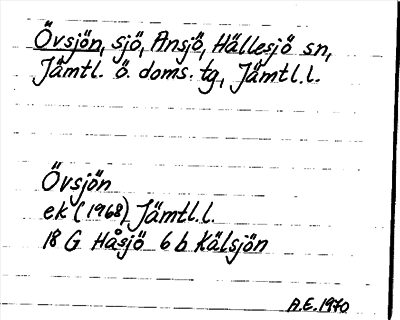 Övsjön, sjö, Ansjö, Hällesjö sn,
Jämtl. ö. doms. tg, Jämtl.l.
Övsjön
ek (1968) Jämtl.l.
18 G Håsjö 6 b Kälsjön
A.E. 1970